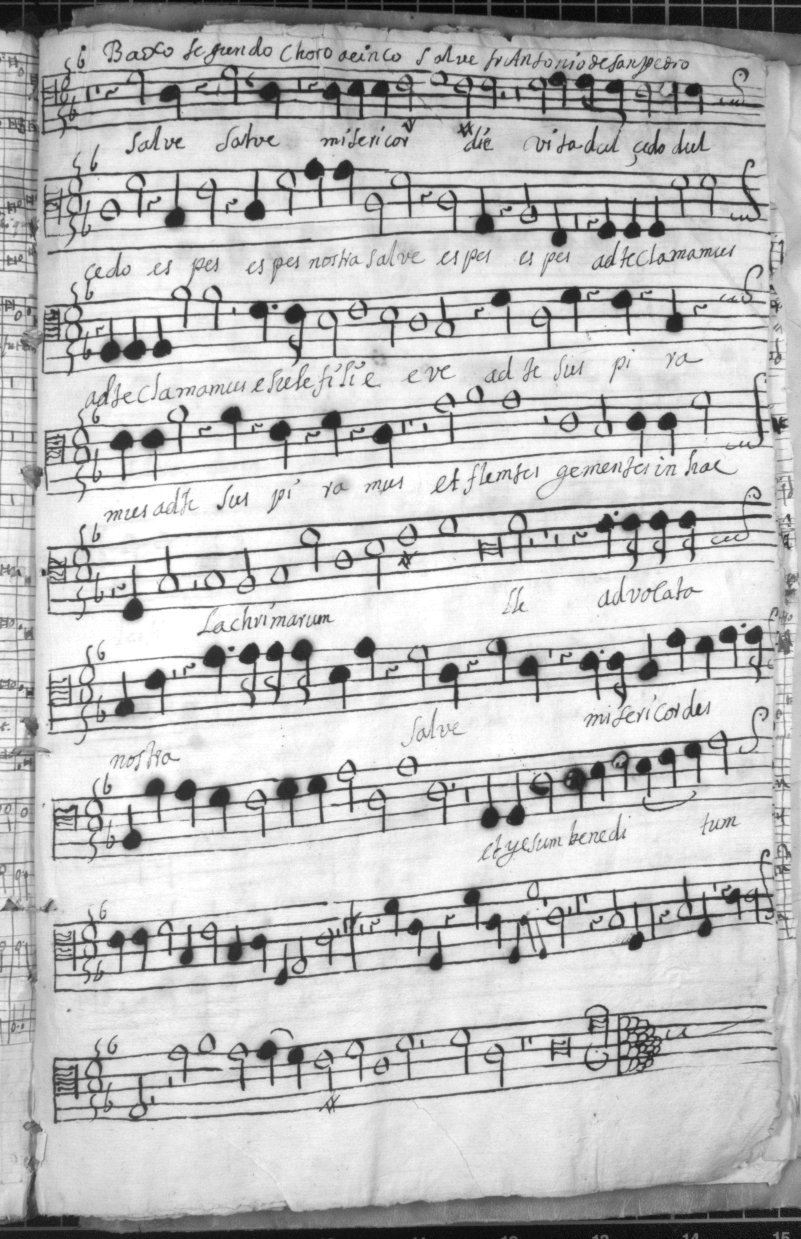 Baxo segundo Choro acinco Salve fr Antonio de san pedro
Salve Salve misericor die vita dul çedo dul
çedo es pes es pes nostra salve es pes es pes ad te clamamus
ad te clamamus e eve ad te sus pi ra
mus ad te sus pi ra mus et flentes gementes in hac
Lachrimarum le advocata
nostra salve misericordes
et yesum benedi tum